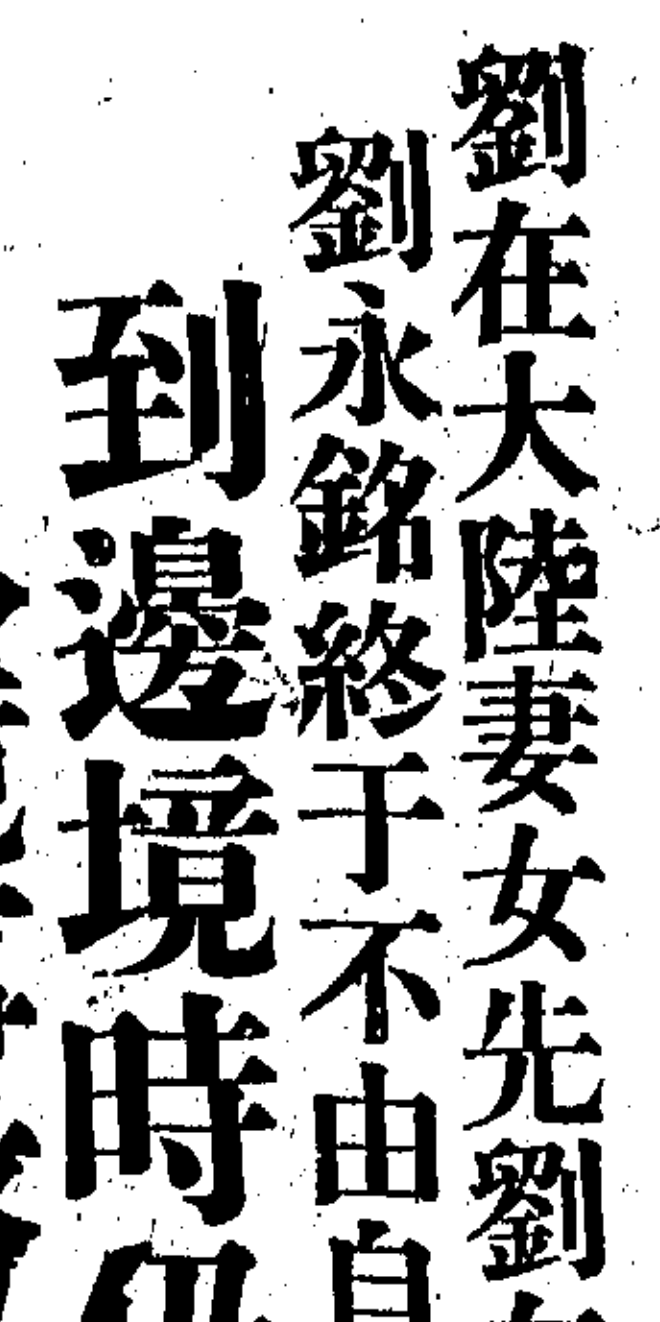 劉在大陸妻女先劉
劉永銘終于不由自
到邊境時